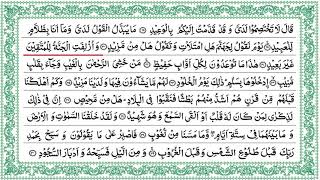 قَالَ لَا تَخْتَصِمُوا لَدَيَّ وَ قَدْ قَدَّمْتُ اِلَيْكُمْ بِالْوَعِيْدِ ۝ مَا يُبَدَّلُ الْقَوْلُ لَدَيَّ وَ مَاۤ اَنَا بِظَلَّامٍ
لِّلْعَبِيْدِ ۝ يَوْمَ نَقُوْلُ لِجَهَنَّمَ هَلِ امْتَلَاْتِ وَ تَقُوْلُ هَلْ مِنْ مَّزِيْدٍ ۝ وَ اُزْلِفَتِ الْجَنَّةُ لِلْمُتَّقِيْنَ
غَيْرَ بَعِيْدٍ ۝ هٰذَا مَا تُوْعَدُوْنَ لِكُلِّ اَوَّابٍ حَفِيْظٍ ۝ مَنْ خَشِيَ الرَّحْمٰنَ بِالْغَيْبِ وَ جَآءَ بِقَلْبٍ
مُّنِيْبِ ۝ ادْخُلُوْهَا بِسَلٰمٍ ذٰلِكَ يَوْمُ الْخُلُوْدِ ۝ لَهُمْ مَّا يَشَآءُوْنَ فِيْهَا وَ لَدَيْنَا مَزِيْدٌ ۝ وَ كَمْ اَهْلَكْنَا
قَبْلَهُمْ مِّنْ قَرْنٍ هُمْ اَشَدُّ مِنْهُمْ بَطْشًا فَنَقَّبُوْا فِي الْبِلَادِ هَلْ مِنْ مَّحِيْصٍ ۝ اِنَّ فِيْ ذٰلِكَ
لَذِكْرٰى لِمَنْ كَانَ لَهٗ قَلْبٌ اَوْ اَلْقَى السَّمْعَ وَ هُوَ شَهِيْدٌ ۝ وَ لَقَدْ خَلَقْنَا السَّمٰوٰتِ وَ الْاَرْضَ
وَ مَا بَيْنَهُمَا فِيْ سِتَّةِ اَيَّامٍ وَّ مَا مَسَّنَا مِنْ لُّغُوْبٍ ۝ فَاصْبِرْ عَلٰى مَا يَقُوْلُوْنَ وَ سَبِّحْ بِحَمْدِ
رَبِّكَ قَبْلَ طُلُوْعِ الشَّمْسِ وَ قَبْلَ الْغُرُوْبِ ۝ وَ مِنَ الَّيْلِ فَسَبِّحْهُ وَ اَدْبَارَ السُّجُوْدِ ۝